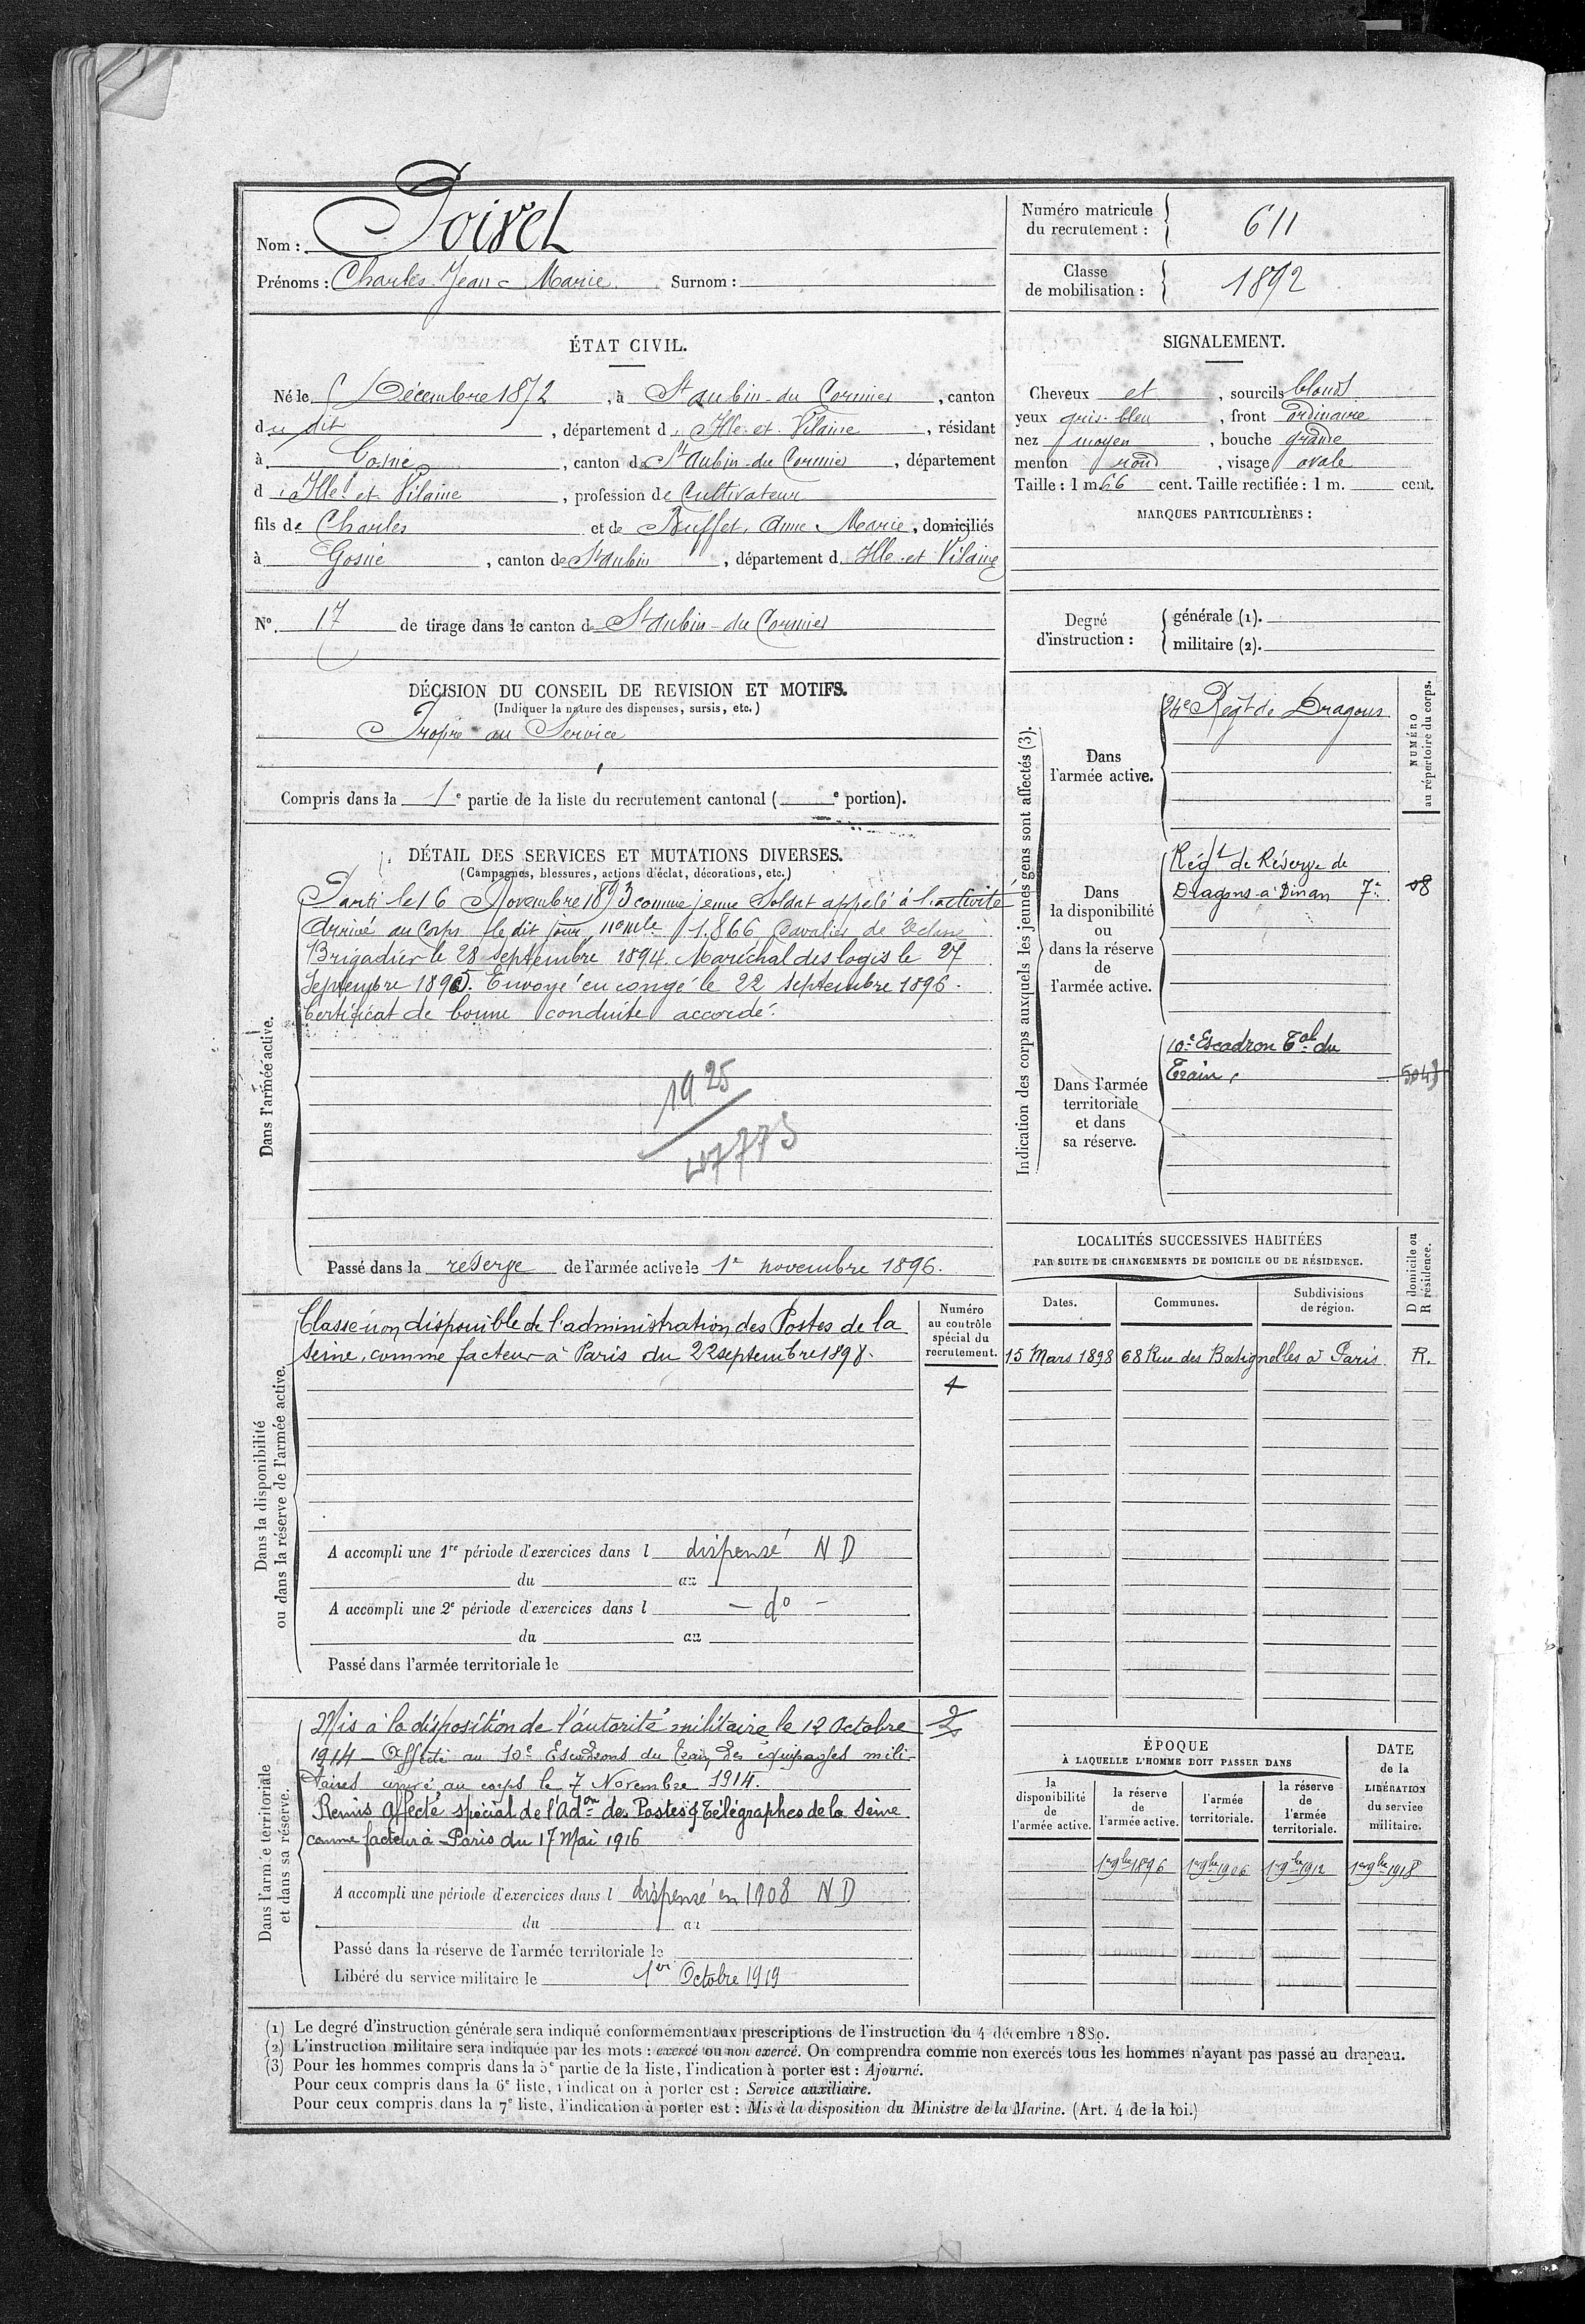 Nom : Poirel
Prénoms : Charles Jean Marie Surnom :
Numéro matricule du recrutement : 611
Classe de mobilisation : 1892
ÉTAT CIVIL.
Né le Décembre 1872, à St Aubin-du Cormier, canton
du dit, département d Ille et Vilaine, résidant
à Gosné, canton de St Aubin-du Cormier, département
d Ille et Vilaine, profession de Cultivateur
fils de Charles et de Buffet, Anne Marie, domiciliés
à Gosné, canton de St Aubin, département d Ille et Vilaine
N° 17 de tirage dans le canton de St Aubin-du Cormier
SIGNALEMENT.
Cheveux et, sourcils blonds
yeux gris-bleu, front ordinaire
nez moyen, bouche grande
menton rond, visage ovale
Taille : 1 m. 66 cent. Taille rectifiée : 1 m. cent.
MARQUES PARTICULIÈRES :
Degré d'instruction : générale (1).
militaire (2).
DÉCISION DU CONSEIL DE REVISION ET MOTIFS.
(Indiquer la nature des dispenses, sursis, etc.)
Propre au Service
Compris dans la 1e partie de la liste du recrutement cantonal ( e portion).
DÉTAIL DES SERVICES ET MUTATIONS DIVERSES.
(Campagnes, blessures, actions d'éclat, décorations, etc.)
Dans l'armée active.
Parti le 16 Novembre 1893 comme jeune Soldat appelé à l'activité
Arrivé au Corps le dit jour, no mle 1.866 Cavalier de 2e classe
Brigadier le 28 septembre 1894. Maréchal des logis le 27
Septembre 1895. Envoyé en congé le 22 septembre 1896.
Certificat de bonne conduite accordé.
1925
Passé dans la réserve de l'armée active le 1er novembre 1896.
Indication des corps auxquels les jeunes gens sont affectés (3).
NUMÉRO
au répertoire du corps.
Dans l'armée active.
24e Régt de Dragons
Dans la disponibilité ou dans la réserve de l'armée active.
Régt de Réserve de
Dragons à Dinan 7e
Dans l'armée territoriale et dans sa réserve.
10e Escadron Tal du
Train.
5043
LOCALITÉS SUCCESSIVES HABITÉES
PAR SUITE DE CHANGEMENTS DE DOMICILE OU DE RÉSIDENCE.
Dates. Communes. Subdivisions de région. D domicile ou R résidence.
15 Mars 1898 68 Rue des Batignolles à Paris. R.
Dans la disponibilité
ou dans la réserve de l'armée active.
Numéro au contrôle spécial du recrutement.
Classé non disponible de l'administration des Postes de la
Seine, comme facteur à Paris du 22 septembre 1898.
A accompli une 1re période d'exercices dans l dispensé N D
du au
A accompli une 2e période d'exercices dans l - do -
du au
Passé dans l'armée territoriale le
Dans l'armée territoriale
et dans sa réserve.
Mis à la disposition de l'autorité militaire le 12 Octobre
1914 - Affecté au 10e Escadrons du Train des équipages mili-
taires arrivé au corps le 7 Novembre 1914.
Remis affecté spécial de l'Adon des Postes & Télégraphes de la Seine
comme facteur à Paris du 17 Mai 1916
A accompli une période d'exercices dans l dispensé en 1908 N D
du au
Passé dans la réserve de l'armée territoriale le
Libéré du service militaire le 1er Octobre 1919
ÉPOQUE
À LAQUELLE L'HOMME DOIT PASSER DANS
la disponibilité de l'armée active.
la réserve de l'armée active.
l'armée territoriale.
la réserve de l'armée territoriale.
DATE de la LIBÉRATION du service militaire.
1er 9bre 1896 1er 9bre 1906 1er 9bre 1912 1er 9bre 1918
(1) Le degré d'instruction générale sera indiqué conformément aux prescriptions de l'instruction du 4 décembre 1889.
(2) L'instruction militaire sera indiquée par les mots : exercé ou non exercé. On comprendra comme non exercés tous les hommes n'ayant pas passé au drapeau.
(3) Pour les hommes compris dans la 5e partie de la liste, l'indication à porter est : Ajourné.
Pour ceux compris dans la 6e liste, l'indication à porter est : Service auxiliaire.
Pour ceux compris dans la 7e liste, l'indication à porter est : Mis à la disposition du Ministre de la Marine. (Art. 4 de la loi.)